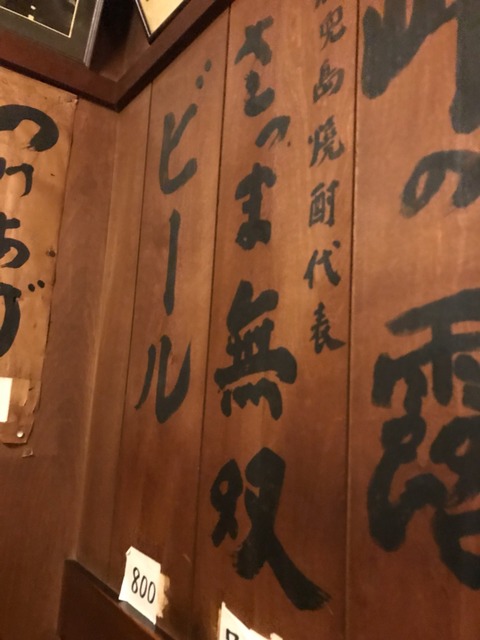 の露
児島焼酎代表
さつま無双
ビール
800
つけあげ